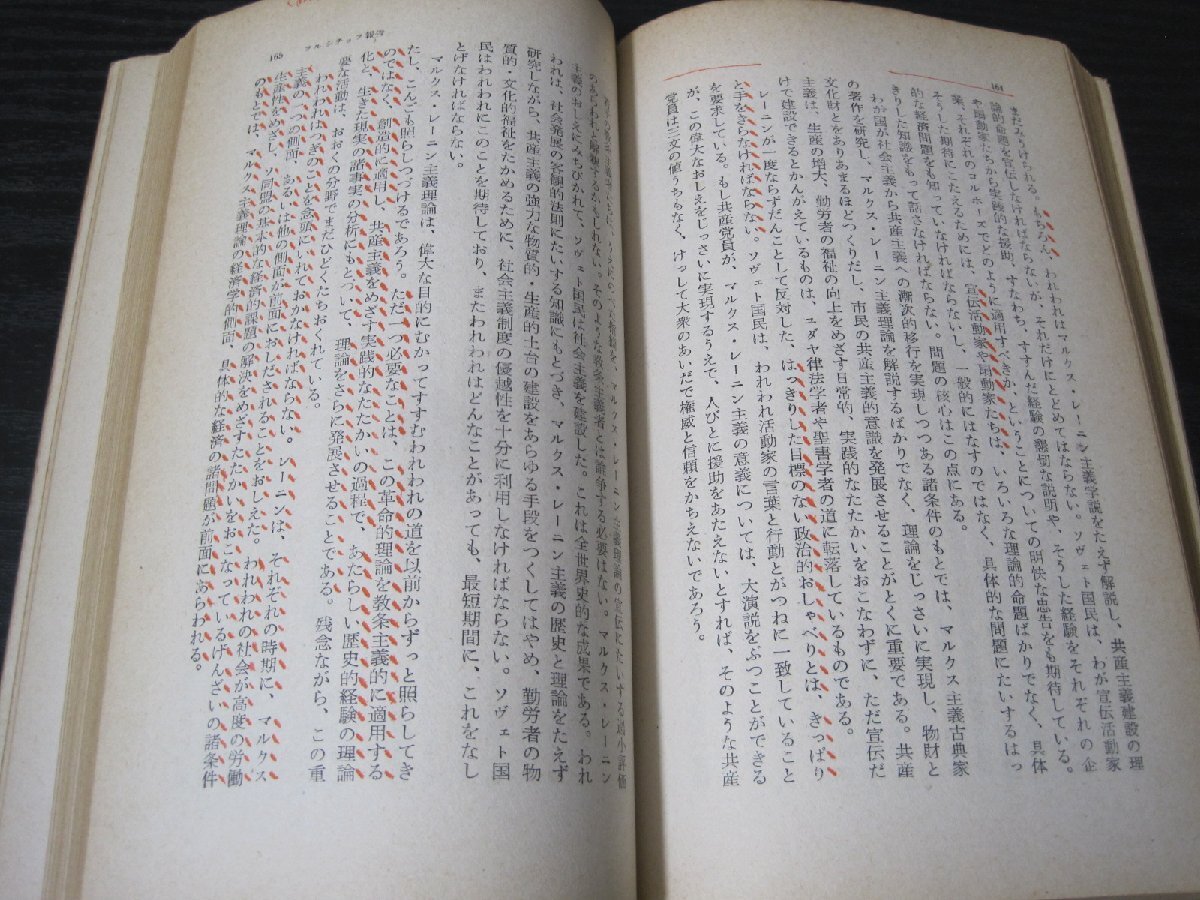 164
まだみうけられる。もちろん、われわれはマルクス・レーニン主義学説をたえず解説し、共産主義建設の理
論的命題を宣伝しなければならないが、それだけにとどめてはならない。ソヴェト国民は、わが宣伝活動家
や扇動家たちから実践的な援助、すなわち、すすんだ経験の懇切な説明や、そうした経験をそれぞれの企
業、それぞれのコルホーズでどのように適用すべきか、ということについての明快な忠告をも期待している。
そうした期待にこたえるためには、宣伝活動家や扇動家たちは、いろいろな理論的命題ばかりでなく、具体
的な経済問題をも知っていなければならないし、一般的にはなすのではなく、具体的な問題にたいするはっ
きりした知識をもって話さなければならない。問題の核心はこの点にある。
わが国が社会主義から共産主義への漸次的移行を実現しつつある諸条件のもとでは、マルクス主義古典家
の著作を研究し、マルクス・レーニン主義理論を解説するばかりでなく、理論をじっさいに実現し、物財と
文化財とをありあまるほどつくりだし、市民の共産主義的意識を発展させることがとくに重要である。共産
主義は、生産の増大、勤労者の福祉の向上をめざす日常的、実践的なたたかいをおこなわずに、ただ宣伝だ
けで建設できるとかんがえているものは、ユダヤ律法学者や聖書学者の道に転落しているものである。
レーニンが一度ならずだんことして反対した、はっきりした目標のない政治的おしゃべりとは、きっぱり
と手をきらなければならない。ソヴェト国民は、われわれ活動家の言葉と行動とがつねに一致していること
を要求している。もし共産党員が、マルクス・レーニン主義の意義については、大演説をぶつことができる
が、この偉大なおしえをじっさいに実現するうえで、人びとに援助をあたえないとすれば、そのような共産
党員は三文の値うちもなく、けっして大衆のあいだで権威と信頼をかちえないであろう。
165 フルシチョフ報告
マルクス・レーニン主義理論の宣伝にたいする過小評価
のあらわれと解釈するかもしれない。そのような教条主義者とは論争する必要はない。マルクス・レーニン
主義のおしえにみちびかれて、ソヴェト国民は社会主義を建設した。これは全世界史的な成果である。われ
われは、社会発展の客観的法則にたいする知識にもとづき、マルクス・レーニン主義の歴史と理論をたえず
研究しながら、共産主義の強力な物質的・生産的土台の建設をあらゆる手段をつくしてはやめ、勤労者の物
質的・文化的福祉をたかめるために、社会主義制度の優越性を十分に利用しなければならない。ソヴェト国
民はわれわれにこのことを期待しており、またわれわれはどんなことがあっても、最短期間に、これをなし
とげなければならない。
マルクス・レーニン主義理論は、偉大な目的にむかってすすむわれわれの道を以前からずっと照らしてき
たし、こんごも照らしつづけるであろう。ただ一つ必要なことは、この革命的理論を教条主義的に適用する
のではなく、創造的に適用し、共産主義をめざす実践的なたたかいの過程で、あたらしい歴史的経験の理論
化と、生きた現実の諸事実の分析にもとづいて、理論をさらに発展させることである。残念ながら、この重
要な活動は、おおくの分野でまだひどくたちおくれている。
われわれはつぎのことを念頭にいれておかなければならない。レーニンは、それぞれの時期に、マルクス
主義の一つの側面、あるいは他の側面が前面におしだされることをおしえた。われわれの社会が高度の労働
生産性をめざし、ソ同盟の基本的な経済的課題の解決をめざすたたかいをおこなっているげんざいの諸条件
のもとでは、マルクス主義理論の経済学的側面、具体的な経済の諸問題が前面にあらわれる。